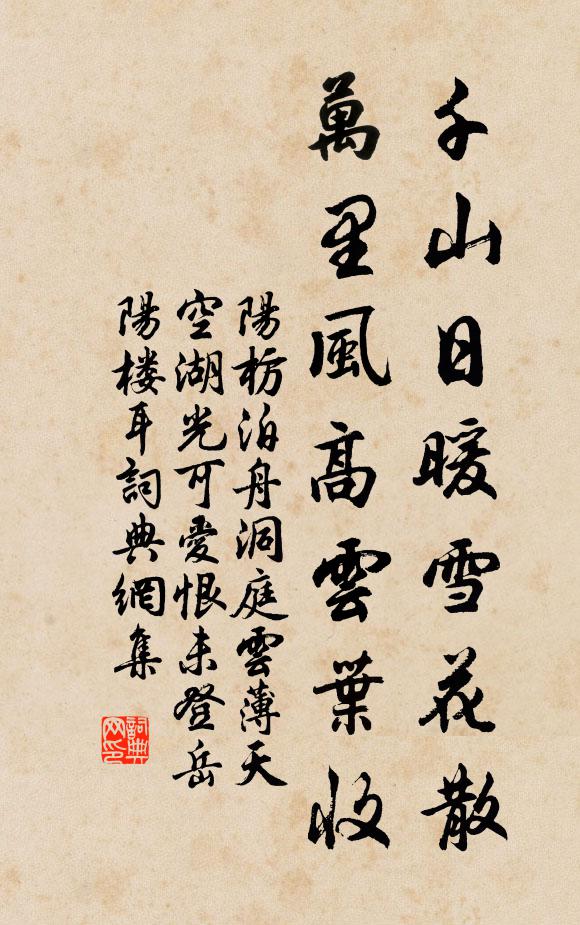 千山日暖雪花散
萬里風高雲葉收
陽枋泊舟洞庭雲薄天
空湖光可愛恨未登岳
陽楼耳詞典網集
詞典
网印